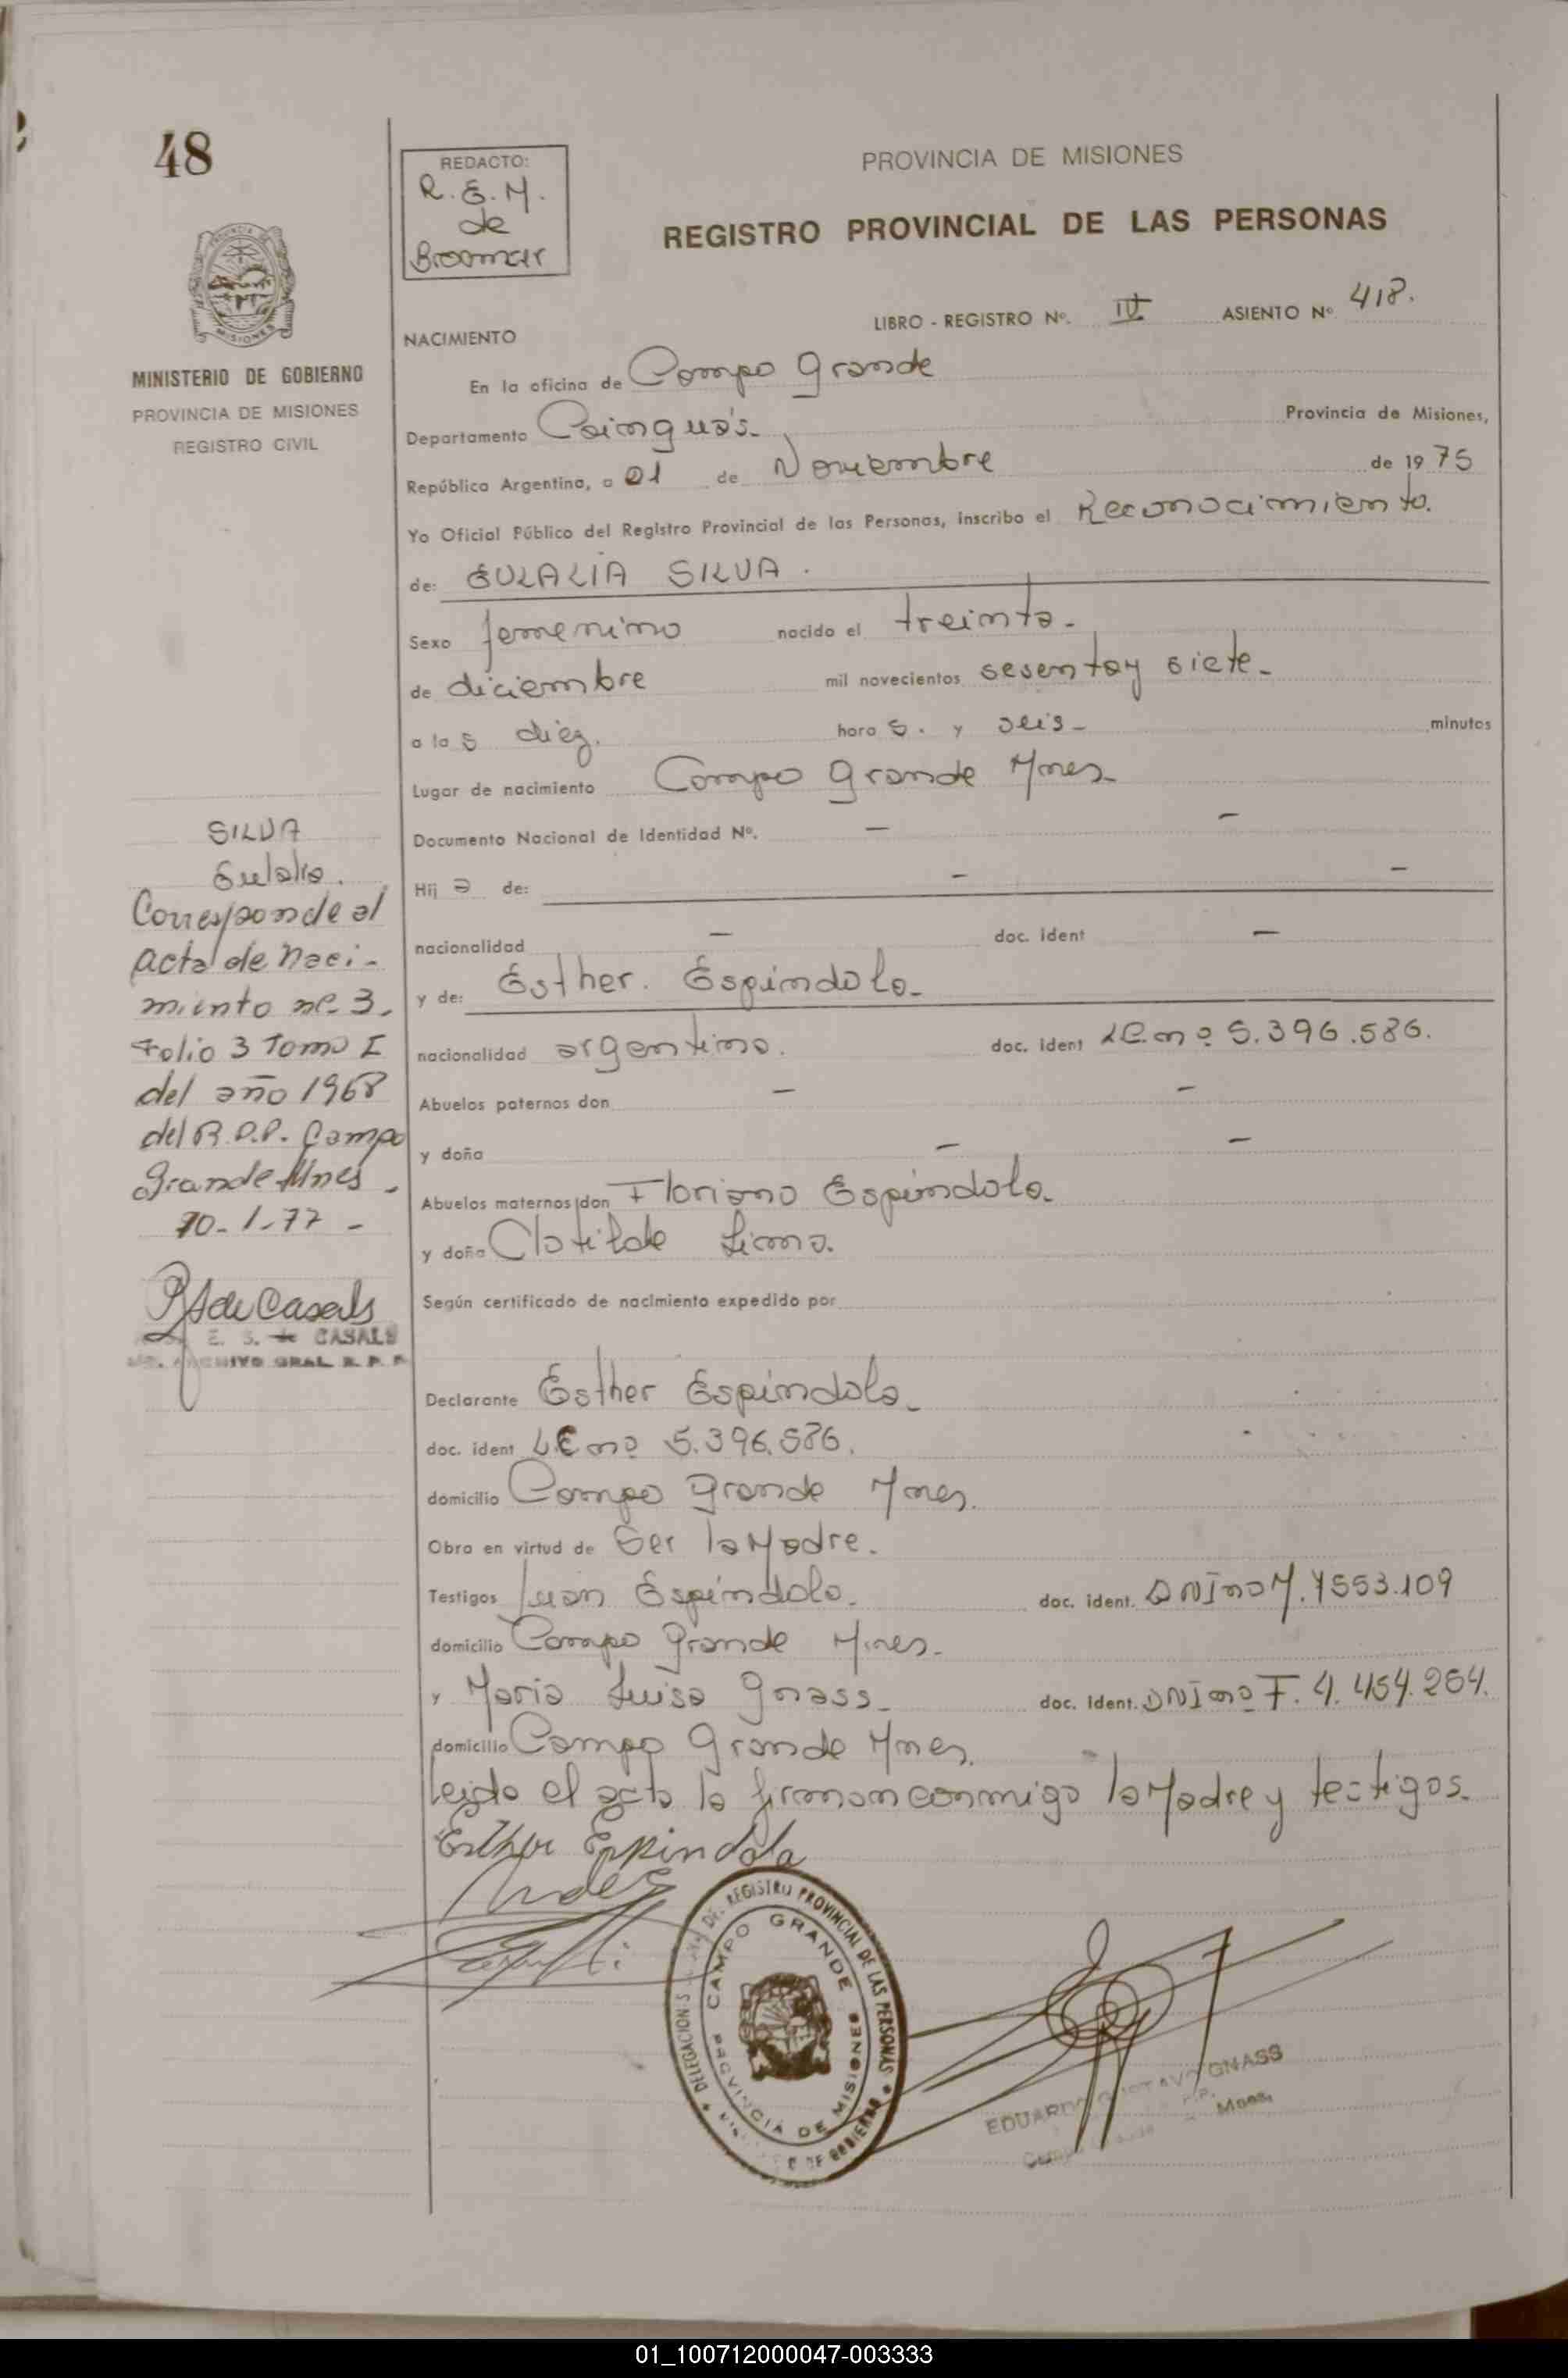 48
PROVINCIA DE MISIONES
MINISTERIO DE GOBIERNO
PROVINCIA DE MISIONES
REGISTRO CIVIL
SILVA
Eulalia.
Corresponde al
acta de Naci-
miento nº. 3.
Folio 3 Tomo I
del año 1968
del R.P.P. Campo
Grande Mnes.
10-1-77 -
de Casals
E. S. de CASALS
ARCHIVO GRAL R. P. P.
REDACTO:
R.E.M.
de
PROVINCIA DE MISIONES
REGISTRO PROVINCIAL DE LAS PERSONAS
LIBRO - REGISTRO Nº. IV ASIENTO Nº 418.
NACIMIENTO
En la oficina de Campo Grande
Departamento Cainguás. Provincia de Misiones,
República Argentina, a 01 de Noviembre de 1975
Yo Oficial Público del Registro Provincial de las Personas, inscribo el Reconocimiento.
de: EULALIA SILVA.
Sexo femenino nacido el treinta-
de diciembre mil novecientos sesenta y siete-
a las diez. horas. y seis- minutos
Lugar de nacimiento Campo Grande Mnes-
Documento Nacional de Identidad Nº. — —
Hija de: — —
nacionalidad — doc. ident —
y de: Esther. Espíndola-
nacionalidad argentina. doc. ident LC. nº 5.396.586.
Abuelos paternos don — —
y doña — —
Abuelos maternos don Floriano Espíndola-
y doña Clotilde Lima.
Según certificado de nacimiento expedido por
Declarante Esther Espíndola-
doc. ident LC nº 5.396.586.
domicilio Campo Grande Mnes.
Obra en virtud de Ser la Madre.
Testigos Juan Espíndola. doc. ident. DNI nº M. 7553.109
domicilio Campo Grande Mnes-
y Maria Luisa Gnass- doc. ident. DNI nº F. 4.454.264.
domicilio Campo Grande Mnes.
Leida el acta la firman conmigo la Madre y testigos.
Esther Espindola
REGISTRO PROVINCIAL DE LAS PERSONAS
CAMPO GRANDE
PROVINCIA DE MISIONES
EDUARDO GUSTAVO GNASS
Mnes.
01_100712000047-003333